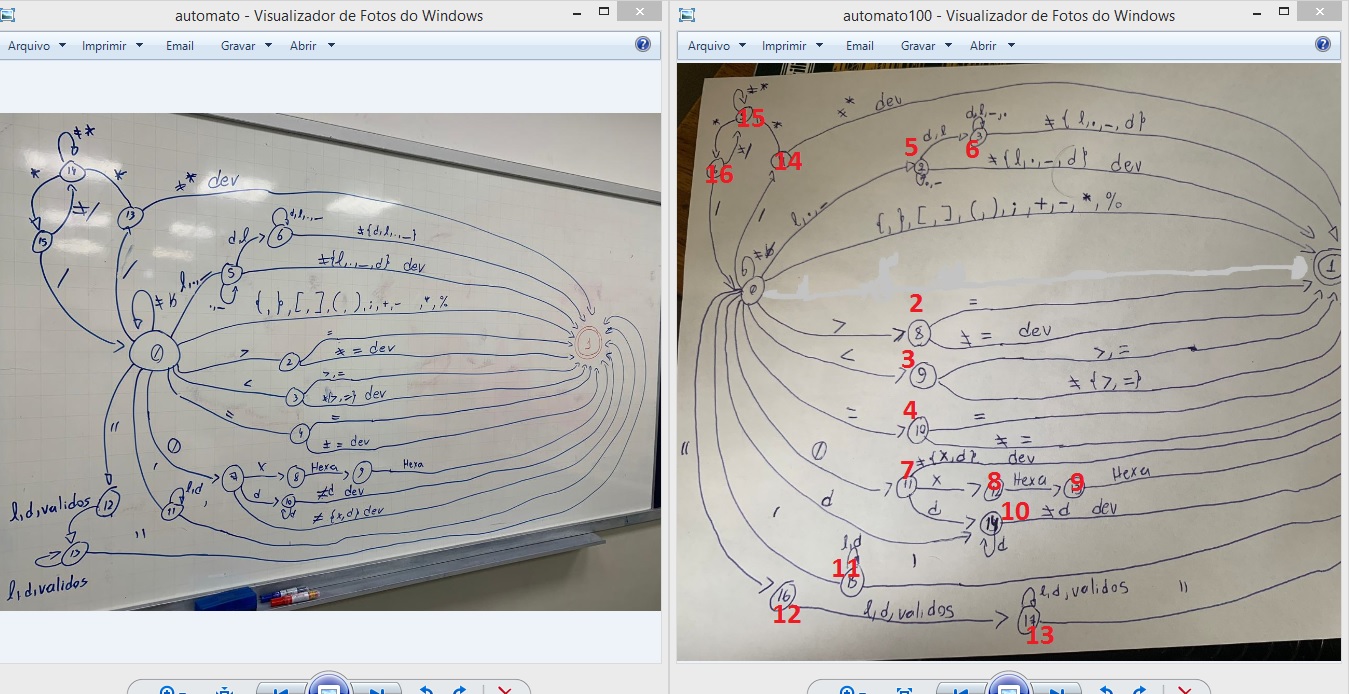 automato - Visualizador de Fotos do Windows
Arquivo Imprimir Email Gravar Abrir
≠*
14
* *
** dev
13
≠/
15
/ /
d,l,.,_
d,l 6 ≠{d,l,.,_}
l,.,_ 5 ≠{l,.,_,d} dev
.,_
≠b
{,},[,],(,),;,+,- ,*,%
0
1
> 2 =
≠ = dev
< 3 >,=
≠{>,=} dev
= 4 =
≠ = dev
"
0
' 7 x 8 Hexa 9 Hexa
d 10 ≠d dev
d
≠{x,d} dev
l,d
'
l,d,validos 12
11
"
13
l,d,validos
automato100 - Visualizador de Fotos do Windows
Arquivo Imprimir Email Gravar Abrir
≠*
15
* *
** dev
≠/
16
14
/ /
d,l,_,.
5 d,l 3 6 ≠{l,.,_,d}
2 ≠{l,.,_,d} dev
.,_
l,.,_
{,},[,],(,),;,+,-,*,%
≠b
0
1
2
> 8 =
≠ = dev
3
< 9 >,=
≠{>,=}
4
= 10 =
≠ =
"
0
7 ≠{x,d} dev
11 x 8 Hexa 9 Hexa
d
d 14 10 ≠d dev
d
'
l,d
11
15 '
16
12
l,d,validos
l,d,validos "
17
13